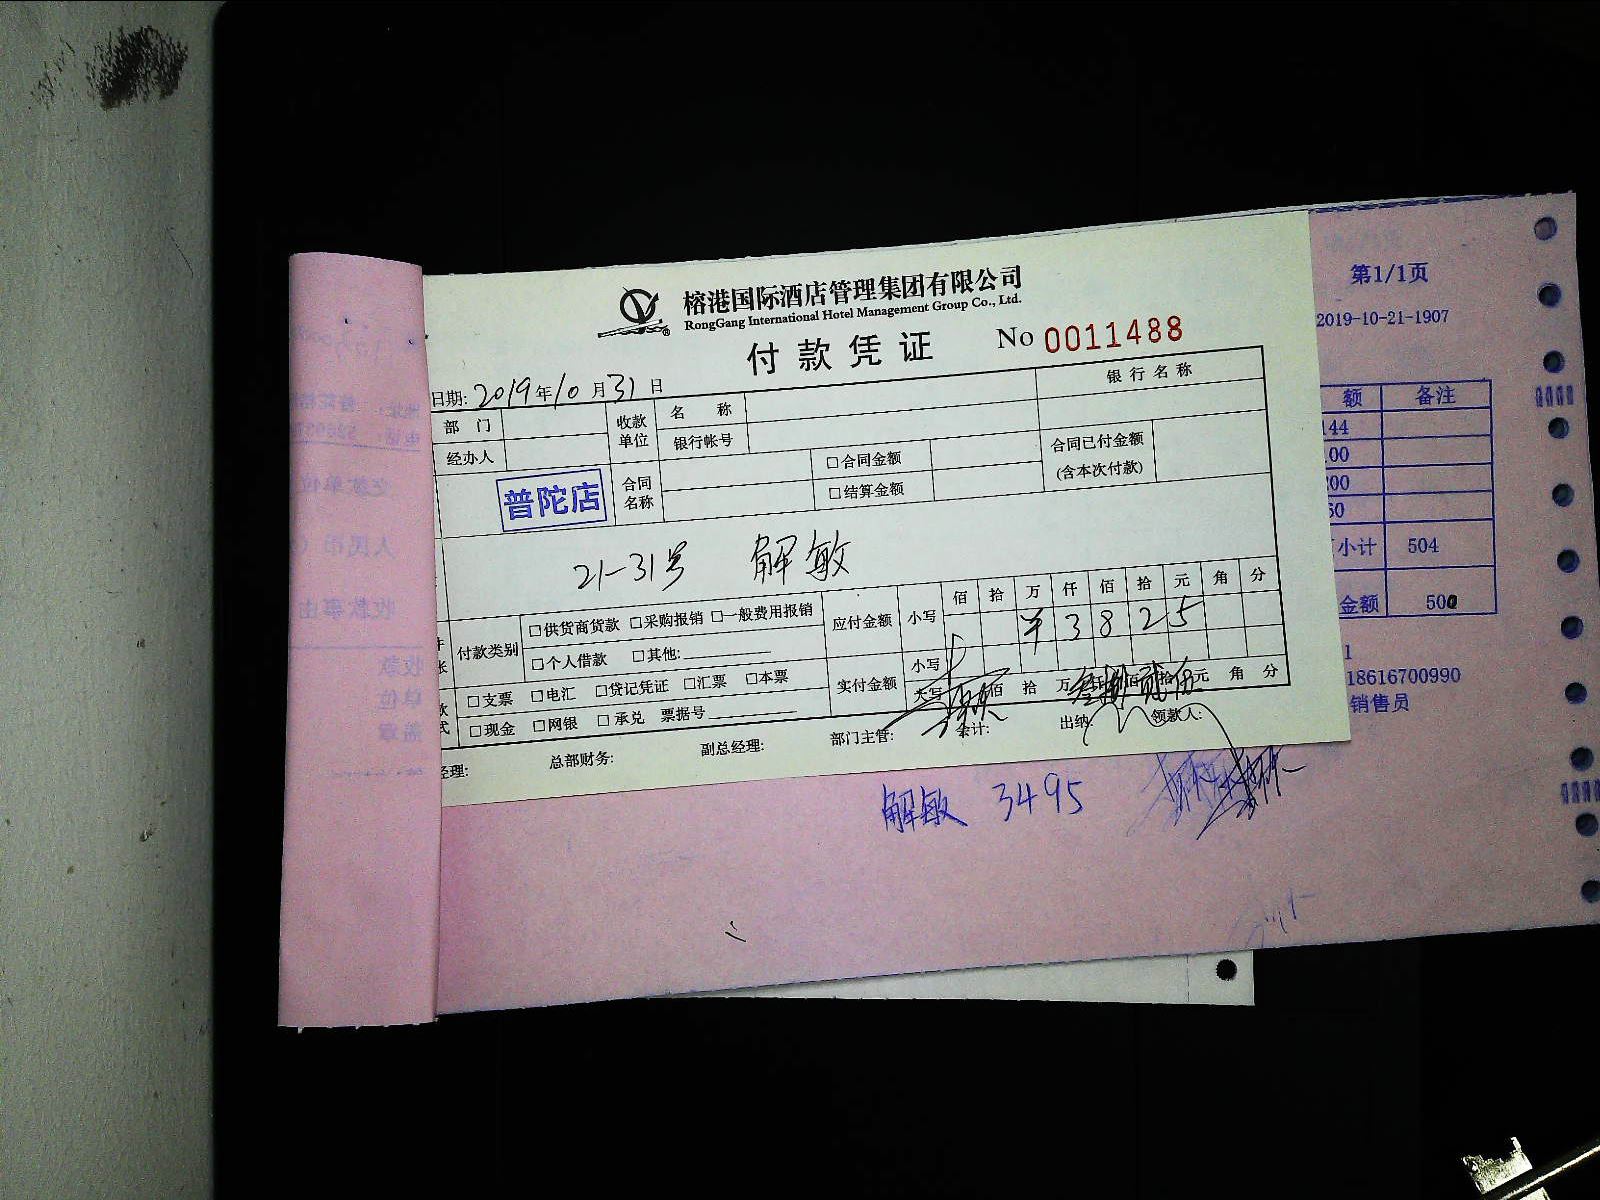 榕港国际酒店管理集团有限公司
RongGang International Hotel Management Group Co., Ltd.
付款凭证 No 0011488
日期: 2019年10月31日
部 门 收款单位 名 称 银行名称
经办人 银行帐号
普陀店 合同名称 □合同金额 合同已付金额
□结算金额 (含本次付款)
21-31号 解敏
付款类别 □供货商货款 □采购报销 □一般费用报销 应付金额 小写 佰 拾 万 仟 佰 拾 元 角 分
¥ 3 8 2 5
□个人借款 □其他:
□支票 □电汇 □贷记凭证 □汇票 □本票 实付金额 小写
□现金 □网银 □承兑 票据号 大写 佰 拾 万 仟 佰 拾 元 角 分
经理: 总部财务: 副总经理: 部门主管: 会计: 出纳 领款人:
解敏 3495
第1/1页
2019-10-21-1907
额 备注
144
小计 504
金额 500
18616700990
销售员